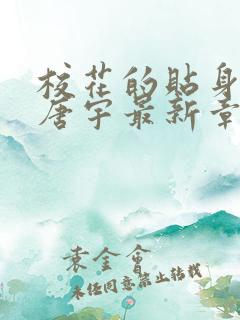 校花的贴身
唐宇最新章
袁金會
未经同意禁止转载